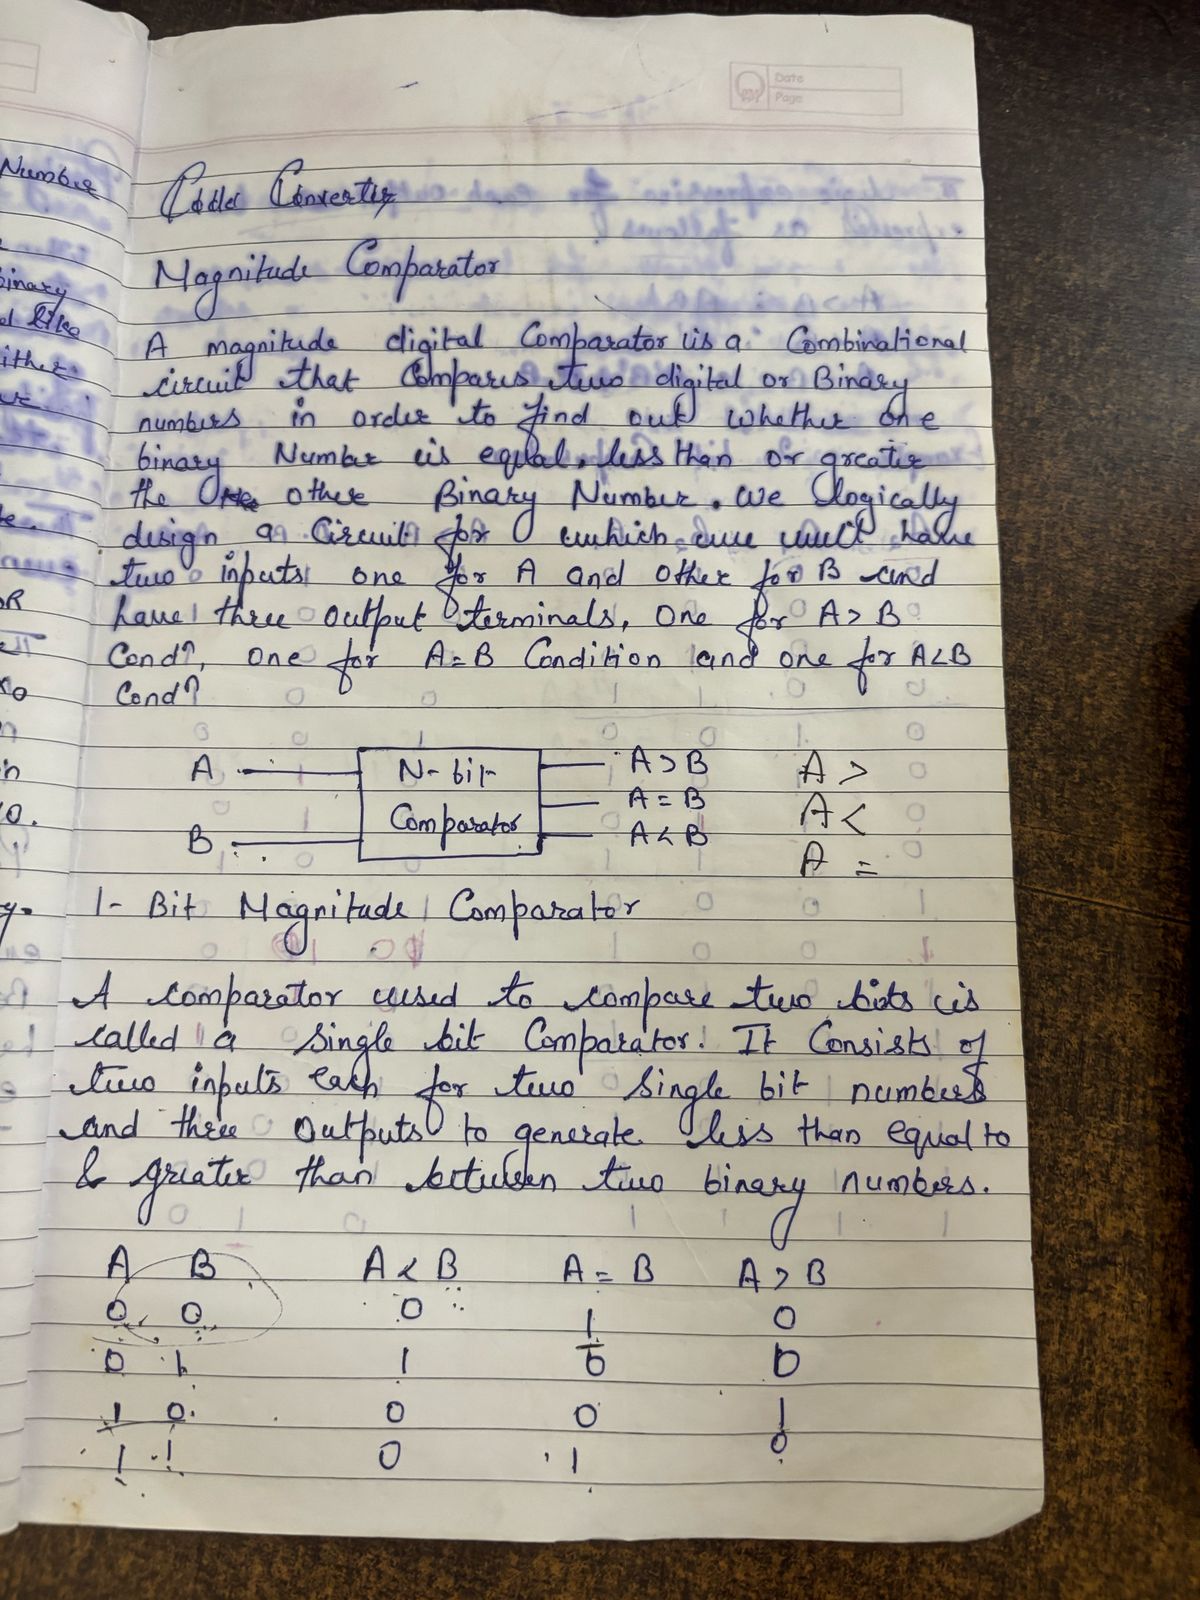 Number
Date
Page
Code Converter
Magnitude Comparator
binary
A magnitude digital Comparator is a Combinational
circuit that Compares two digital or Binary
numbers in order to find out whether one
binary Number is equal, less than or greater
the other Binary Number. We logically
design a Circuit for which we will have
two inputs one for A and other for B and
have three output terminals, One for A> B
Condⁿ, one for A=B Condition and one for A<B
Condⁿ
A N-bit A>B A >
A = B A <
B Comparator A < B A =
1- Bit Magnitude Comparator
A comparator used to compare two bits is
called a single bit Comparator. It Consists of
two inputs each for two single bit numbers
and three outputs to generate less than equal to
& greater than between two binary numbers.
A B A < B A = B A > B
0 0 0 1 0
0 1 1 0 0
1 0 0 0 1
1 1 0 1 0